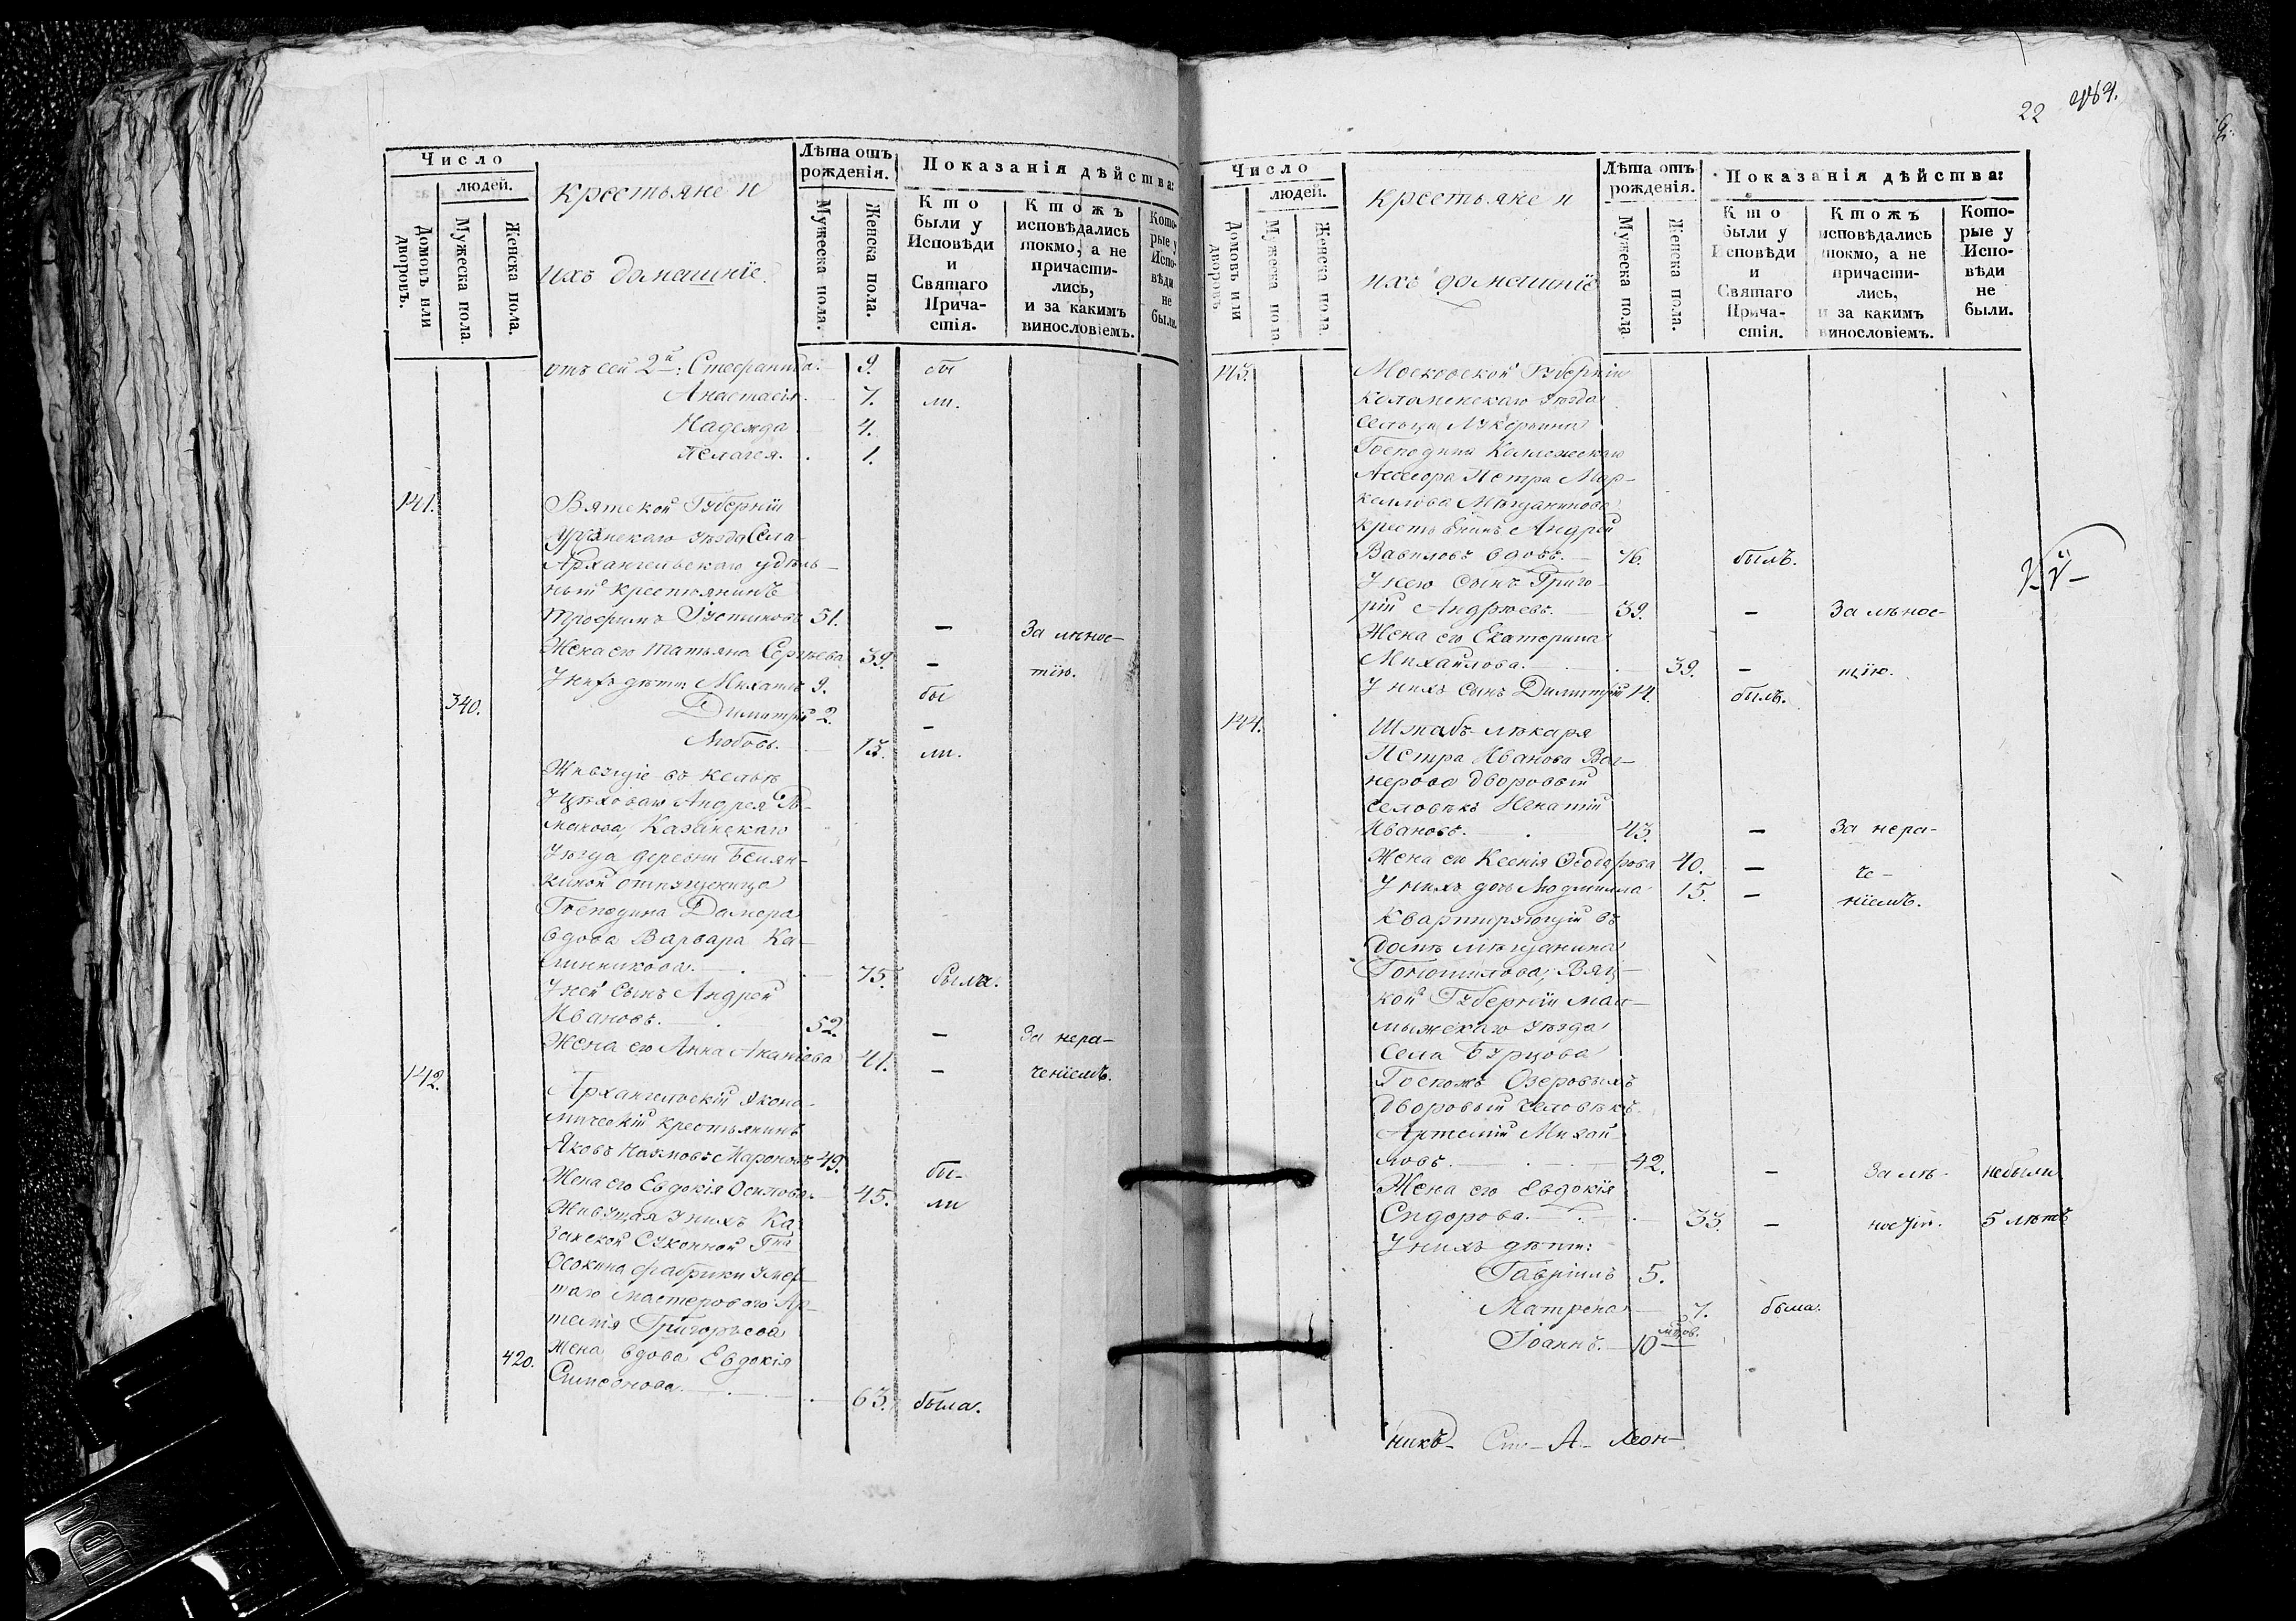 Число
людей.
Домовъ или дворовъ.
Мужеска пола.
Женска пола.
Крестьяне и
ихъ домашніе.
Лѣта отъ рожденія.
Мужеска пола.
Женска пола.
Показанія дѣйства:
Кто были у Исповѣди и Святаго Прича-стія.
Ктожъ исповѣдались токмо, а не причасти-лись, и за какимъ винословіемъ.
Кото-рые у Испо-вѣди не были.
отъ сей 2й: Стефанида. 9. бы
Анастасія. 7. ли.
Надежда 4.
Пелагея. 1.
141. Вятской Губерніи
уѣзда Села
Архангельскаго удѣль-
ный крестьянинъ
Трофимъ Густиновъ 51. – За лѣнос-
Жена его Татьяна Сергѣева 39. – тію.
У нихъ дѣти: Михаилъ 9. бы
340. Димитрій 2. –
Любовь. 13. ли.
Живущіе въ кельѣ
У цѣховаго Андрея
Казанскаго
Уѣзда деревни
кихой отпущеница
Господина Домора
вдова Варвара Ка-
линникова. 75. была.
У ней сынъ Андрей
Ивановъ. 52. – За нера-
Жена его Анна 41. – ченіемъ.
142. Архангельскій Эконо-
мическій крестьянинъ
Яковъ Наумовъ Мароновъ 49. бы-
Жена его Евдокія Осипова. 45. ли
Живущая у нихъ Ка-
занской Суконной Гна
Осокина фабрики умер-
таго мастероваго Ар-
темія Григорьева
420. жена вдова Евдокія
Симеонова. 63. была.
22
Число
людей.
Домовъ или дворовъ
Мужеска пола
Женска пола.
Крестьяне и
ихъ домашніе
Лѣта отъ рожденія.
Мужеска пола
Женска пола.
Показанія дѣйства:
Кто были у Исповѣди и Святаго Прича-стія.
Ктожъ исповѣдались токмо, а не причасти-лись, и за какимъ винословіемъ.
Кото-рые у Испо-вѣди не были.
143. Московской Губерніи
Коломенскаго Уѣзда
Сельца Лукерьина
Господина Коллежскаго
Ассесора Петра Мар-
келлова Мѣщанинова
крестьянинъ Андрей
Вавиловъ вдовъ. 76. былъ.
У него сынъ Григо-
рій Андреевъ. 39. – За лѣнос-
Жена его Екатерина
Михайлова. 39. – тію.
У нихъ сынъ Димитрій 14. былъ.
144. Штабъ-лѣкаря
Петра Иванова Ваг-
нерова дворовый
человѣкъ Игнатій
Ивановъ. 43. – За нера-
Жена его Ксенія Ѳеодорова 40. – че-
У нихъ дочь Людмилла 15. – ніемъ.
Квартирующій въ
домѣ мѣщанина
Вят-
кой Губерніи Мал-
мыжскаго уѣзда
села Бурцова
Госпожъ Озеровыхъ
дворовый человѣкъ
Артемій Михай-
ловъ. 42. – За лѣ- небыли
Жена его Евдокія
Сидорова. 33. – ностію. 5 лѣтъ
У нихъ дѣти:
Гавріилъ 5.
Матрона 7. была.
Іоаннъ. 10 мѣсяцов.
никъ